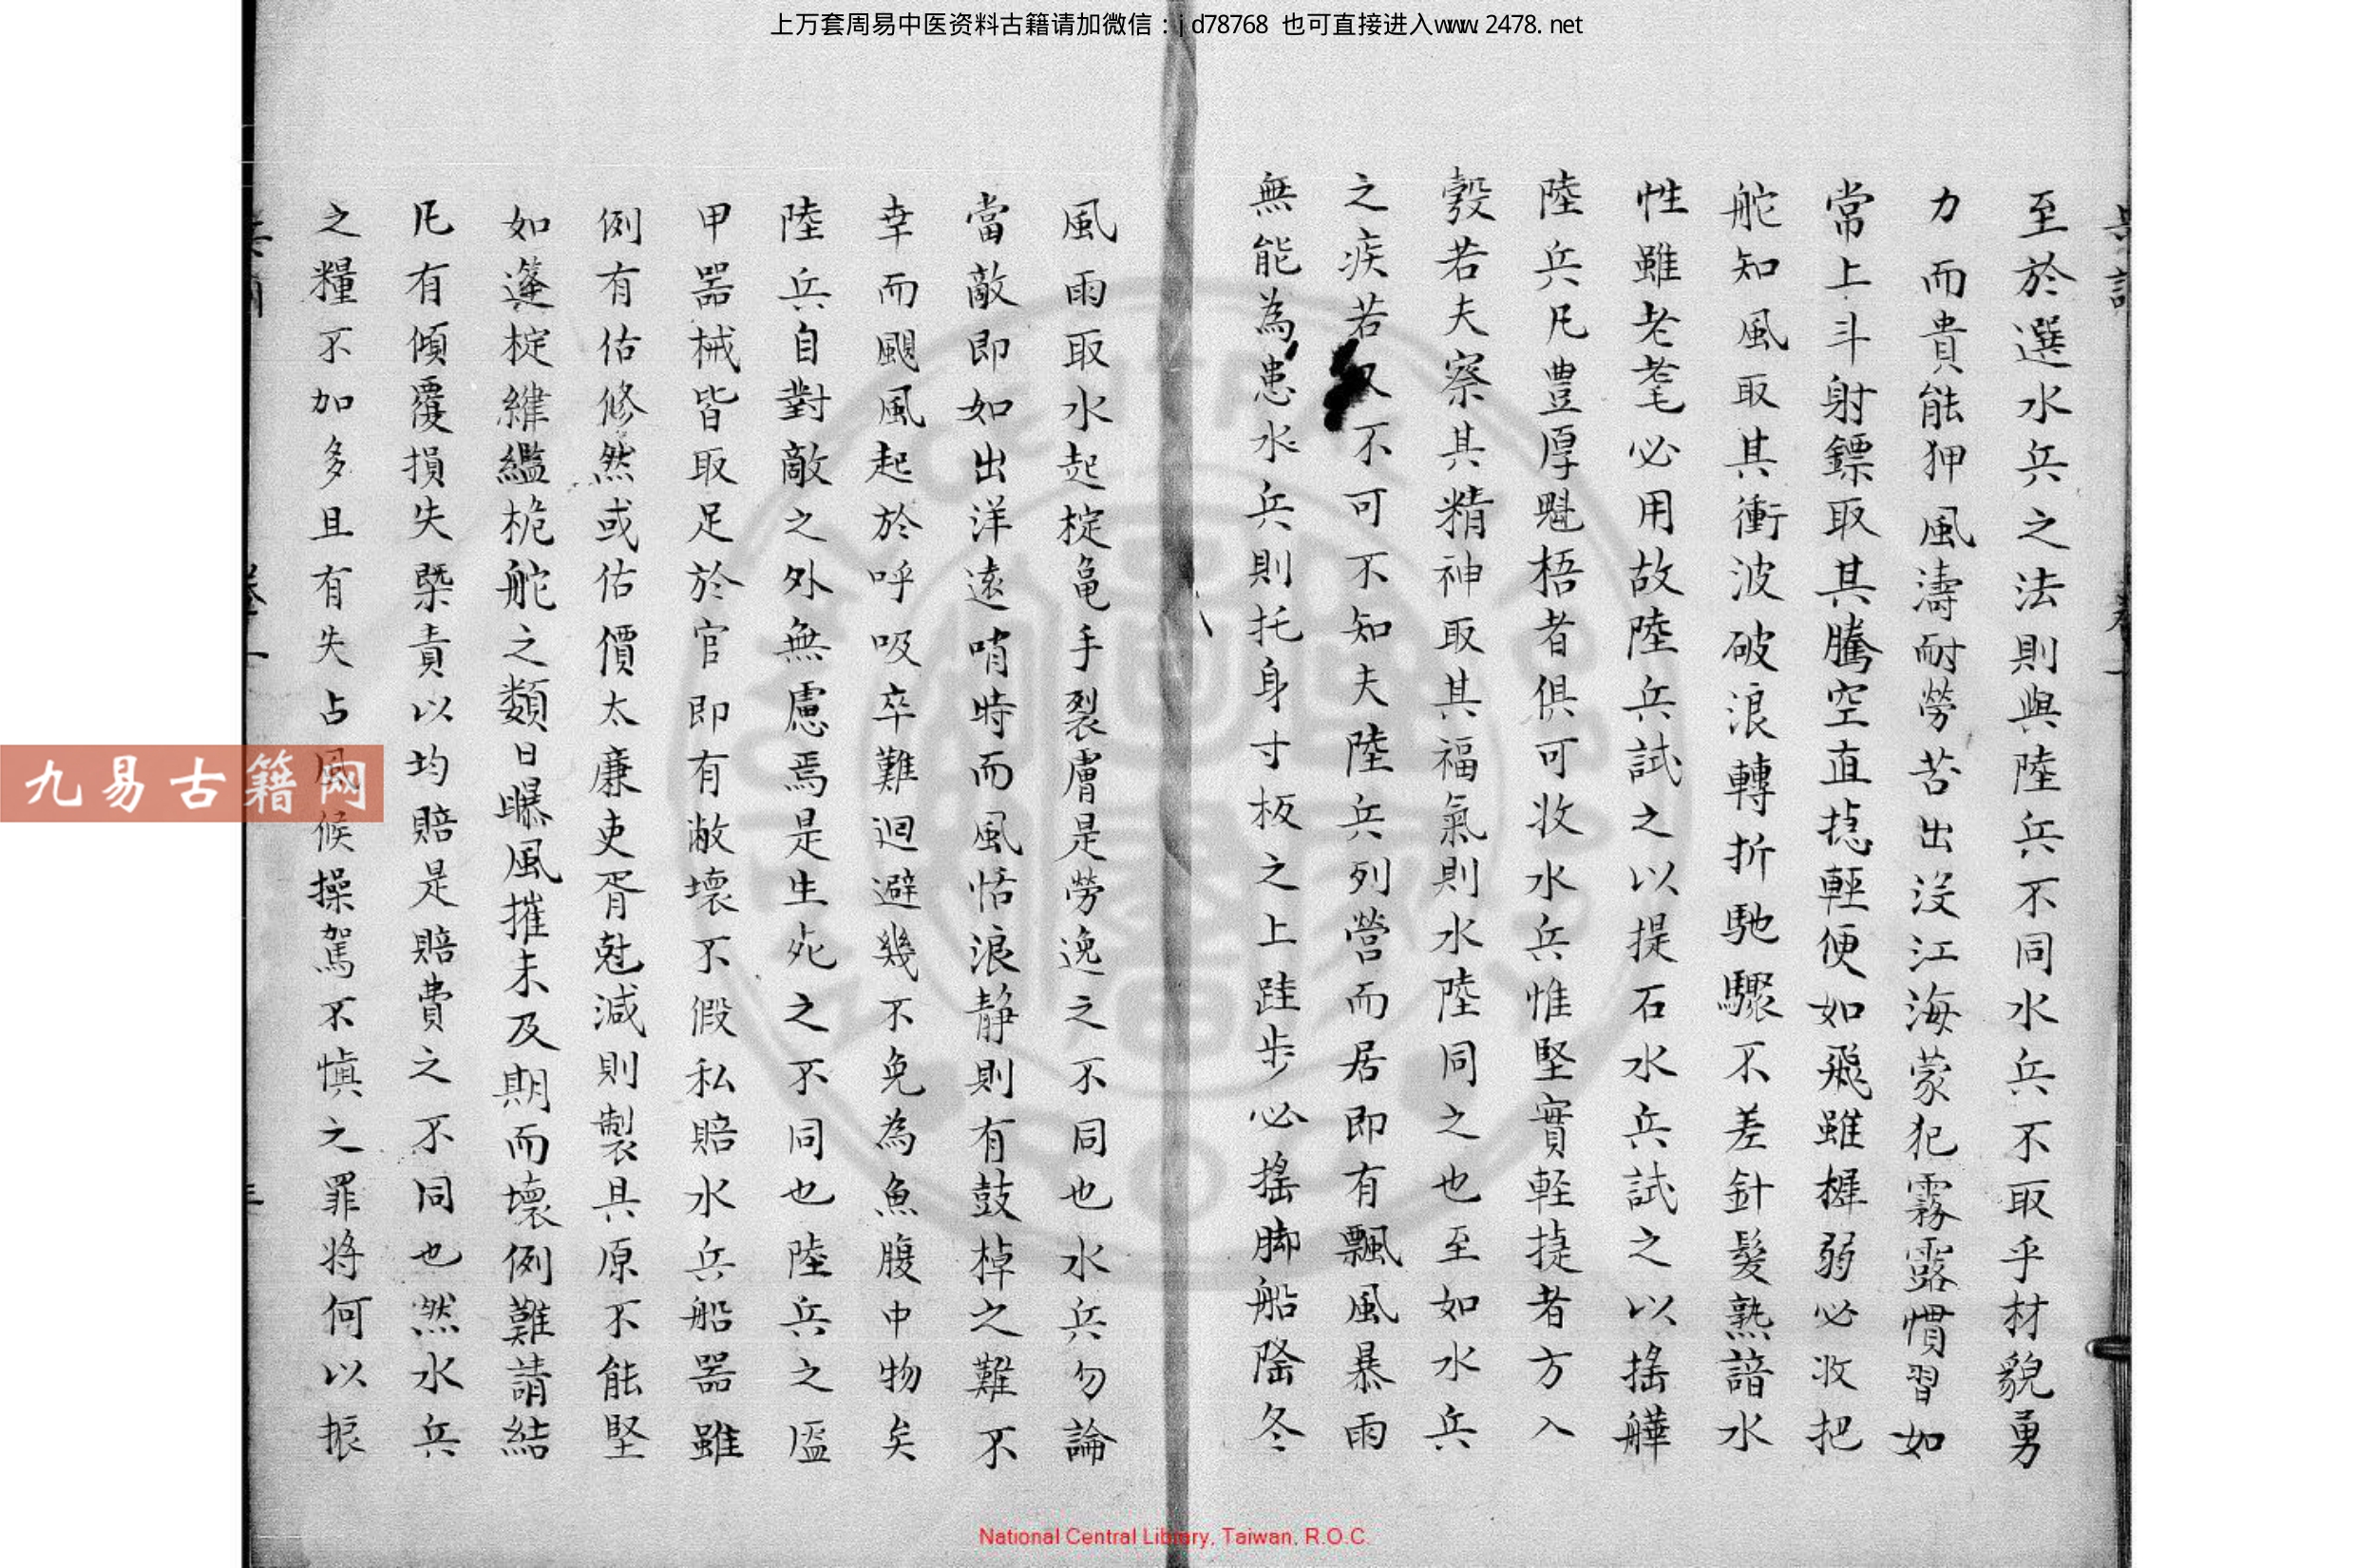 上万套周易中医资料古籍请加微信：jd78768 也可直接进入www.2478.net
至於選水兵之法則與陸兵不同水兵不取乎材貌勇
力而貴能狎風濤耐勞苦出沒江海蒙犯霧露慣習如
常上斗射鏢取其騰空直捷輕便如飛雖樨弱必收把
舵知風取其衝波破浪轉折馳驟不差針髮熟諳水
性雖老耄必用故陸兵試之以提石水兵試之以搖艣
陸兵凡豊厚魁梧者俱可收水兵惟堅實軽捷者方入
彀若夫察其精神取其福氣則水陸同之也至如水兵
之疾若又不可不知夫陸兵列營而居即有飄風暴雨
無能為患水兵則托身寸板之上跬步必搖脚船隆冬
風雨取水起椗龜手裂膚是勞逸之不同也水兵勿論
當敵即如出洋遠哨時而風恬浪静則有鼓棹之難不
幸而颶風起於呼吸卒難迴避幾不免為魚腹中物矣
陸兵自對敵之外無慮焉是生死之不同也陸兵之盔
甲噐械皆取足於官即有敝壞不假私賠水兵船噐雖
例有估修然或估價太廉吏胥尅減則製具原不能堅
如蓬椗繂纜桅舵之類日曝風摧未及期而壞例難請結
凡有傾覆損失槩責以均賠是賠費之不同也然水兵
之糧不加多且有失占風候操駕不慎之罪将何以振
九易古籍网
National Central Library, Taiwan, R.O.C.